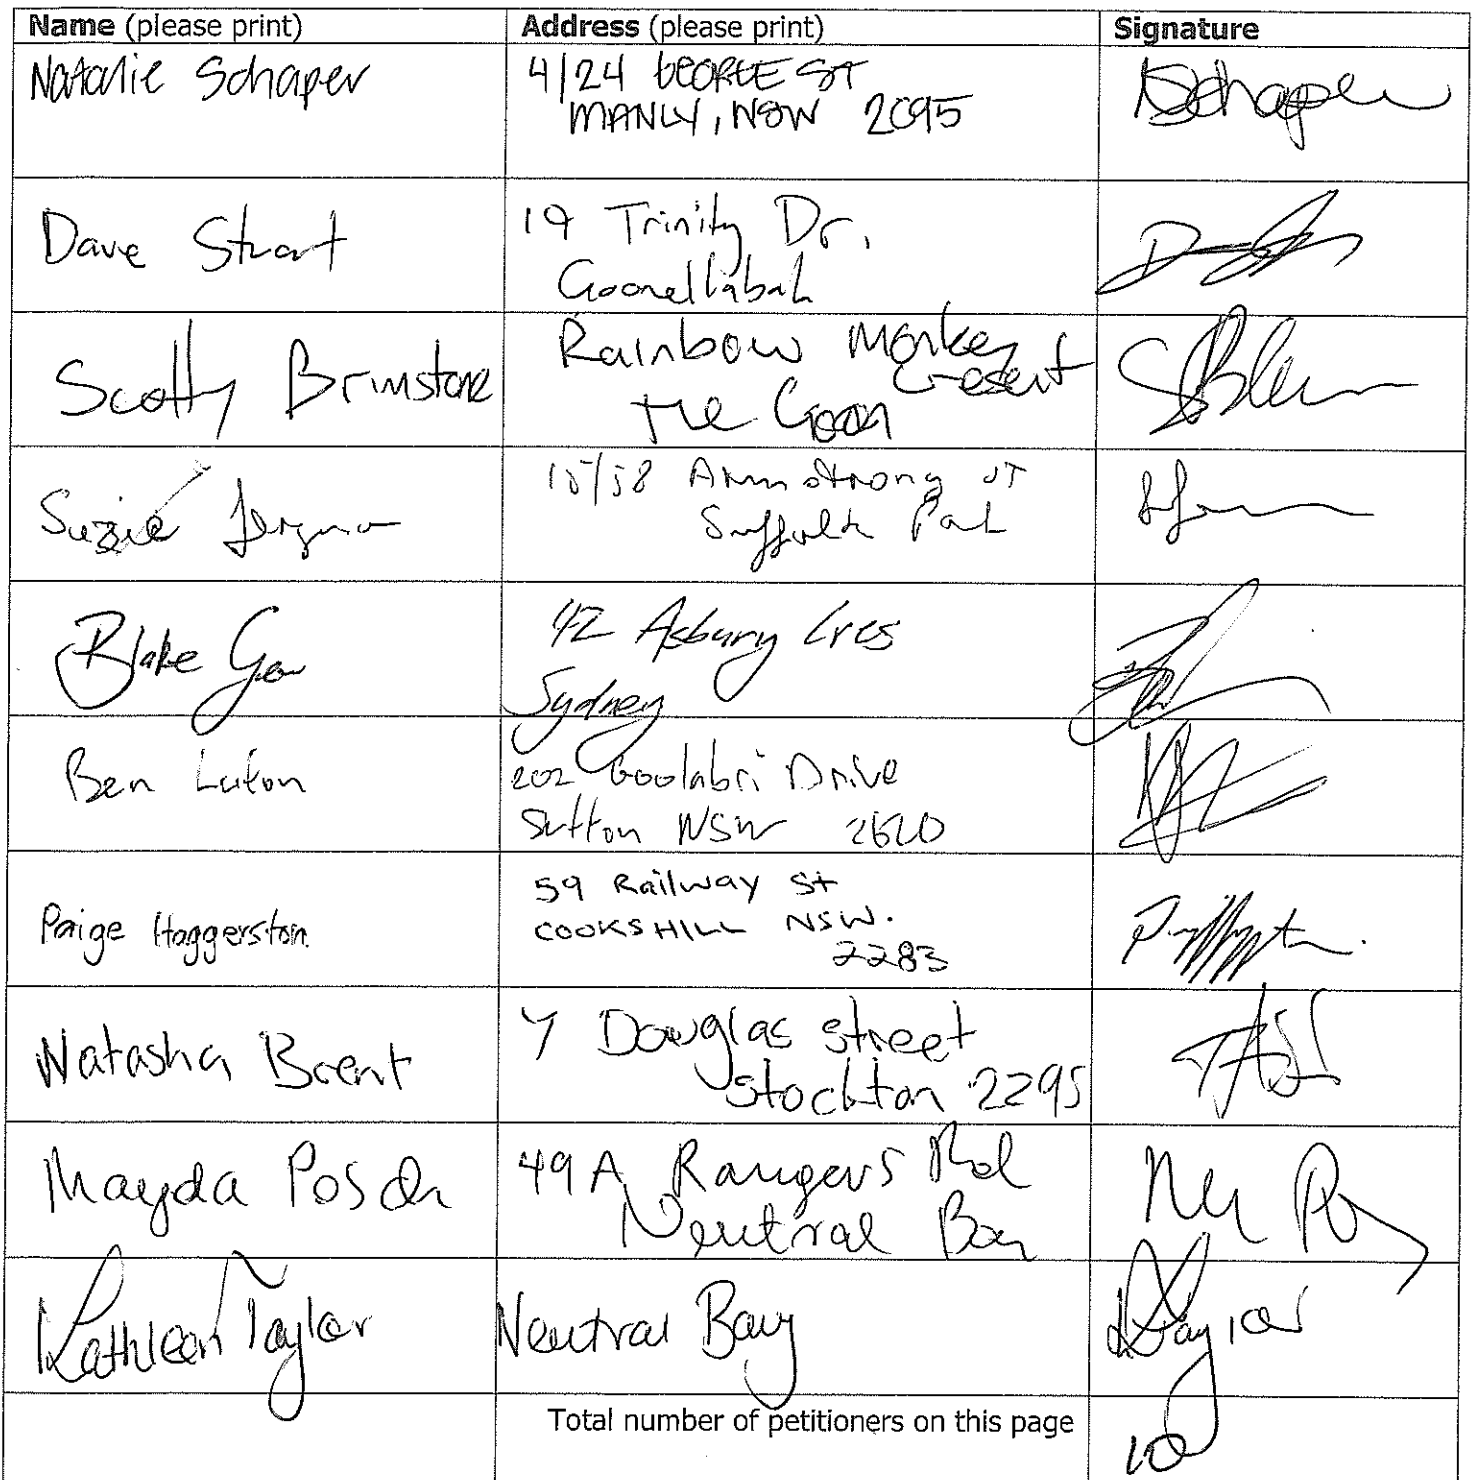 Name (please print) Address (please print) Signature
Natalie Schaper 4/24 GEORGE ST
MANLY, NSW 2095
Dave Stuart 19 Trinity Dr.
Goonellabah
Scotty Brimstone Rainbow Monkey
Cresent
The Goon
Suzie 15/58 Armstrong ST
Suffolk Park
Blake 42 Asbury Cres
Sydney
Ben Luton 202 Goolabri Drive
Sutton NSW 2620
Paige Haggerston 59 Railway St
COOKSHILL NSW.
2283
Natasha Brent 7 Douglas street
Stockton 2295
Mayda Posch 49A Rangers Rd
Neutral Bay
Kathleen Taylor Neutral Bay
Total number of petitioners on this page 10